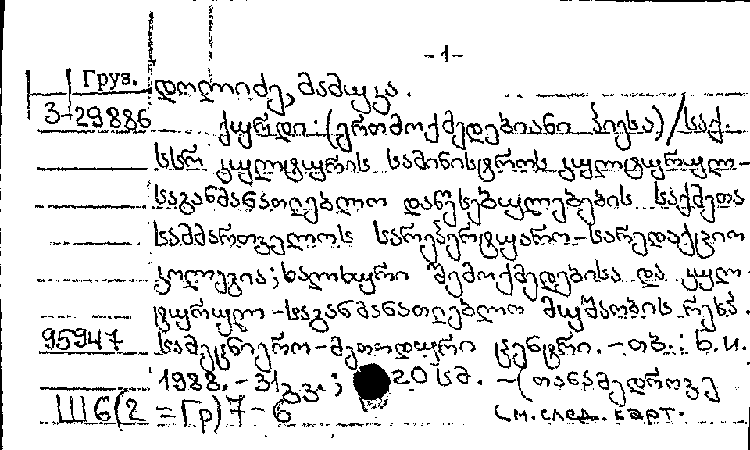 -1-
Груз. დოლიძე, მამუკა.
3-29886 ქურდი: (ერთმოქმედებიანი პიესა)/საქ.
სსრ კულტურის სამინისტროს კულტურულ-
საგანმანათლებლო დაწესებულებების საქმეთა
სამმართველოს სარეპერტუარო-სარედაქციო
კოლეგია; ხალხური შემოქმედებისა და კულ-
ტურულ-საგანმანათლებლო მუშაობის რესპ.
95947 სამეცნიერო-მეთოდური ცენტრი.-თბ.: ხ.ი.
1988.-31გვ.; 20სმ. -(თანამედროვე
Ш6(2=Гр)7-6 См. след. карт.